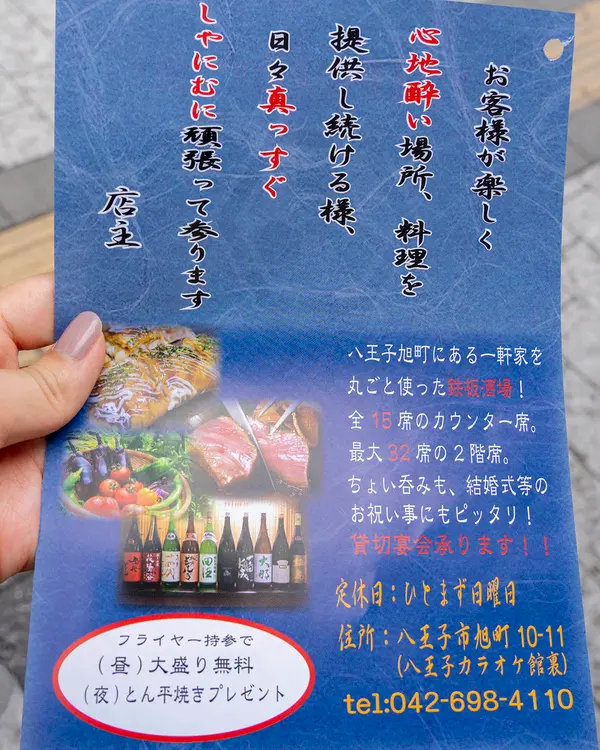 お客様が楽しく
心地酔い場所、料理を
提供し続ける様、
日々真っすぐ
しゃにむに頑張って参ります
店主
八王子旭町にある一軒家を
丸ごと使った鉄板酒場！
全15席のカウンター席。
最大32席の2階席。
ちょい呑みも、結婚式等の
お祝い事にもピッタリ！
貸切宴会承ります！！
定休日：ひとまず日曜日
住所：八王子市旭町10-11
(八王子カラオケ館裏)
tel:042-698-4110
フライヤー持参で
(昼)大盛り無料
(夜)とん平焼きプレゼント
田酒